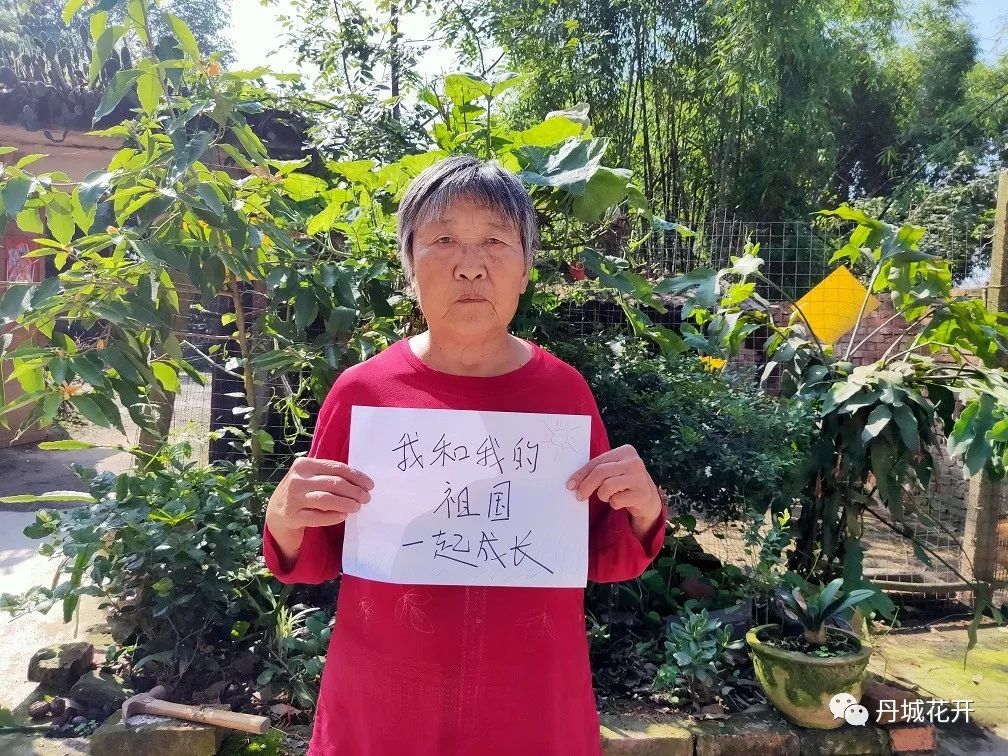 我和我的
祖国
一起成长
丹城花开